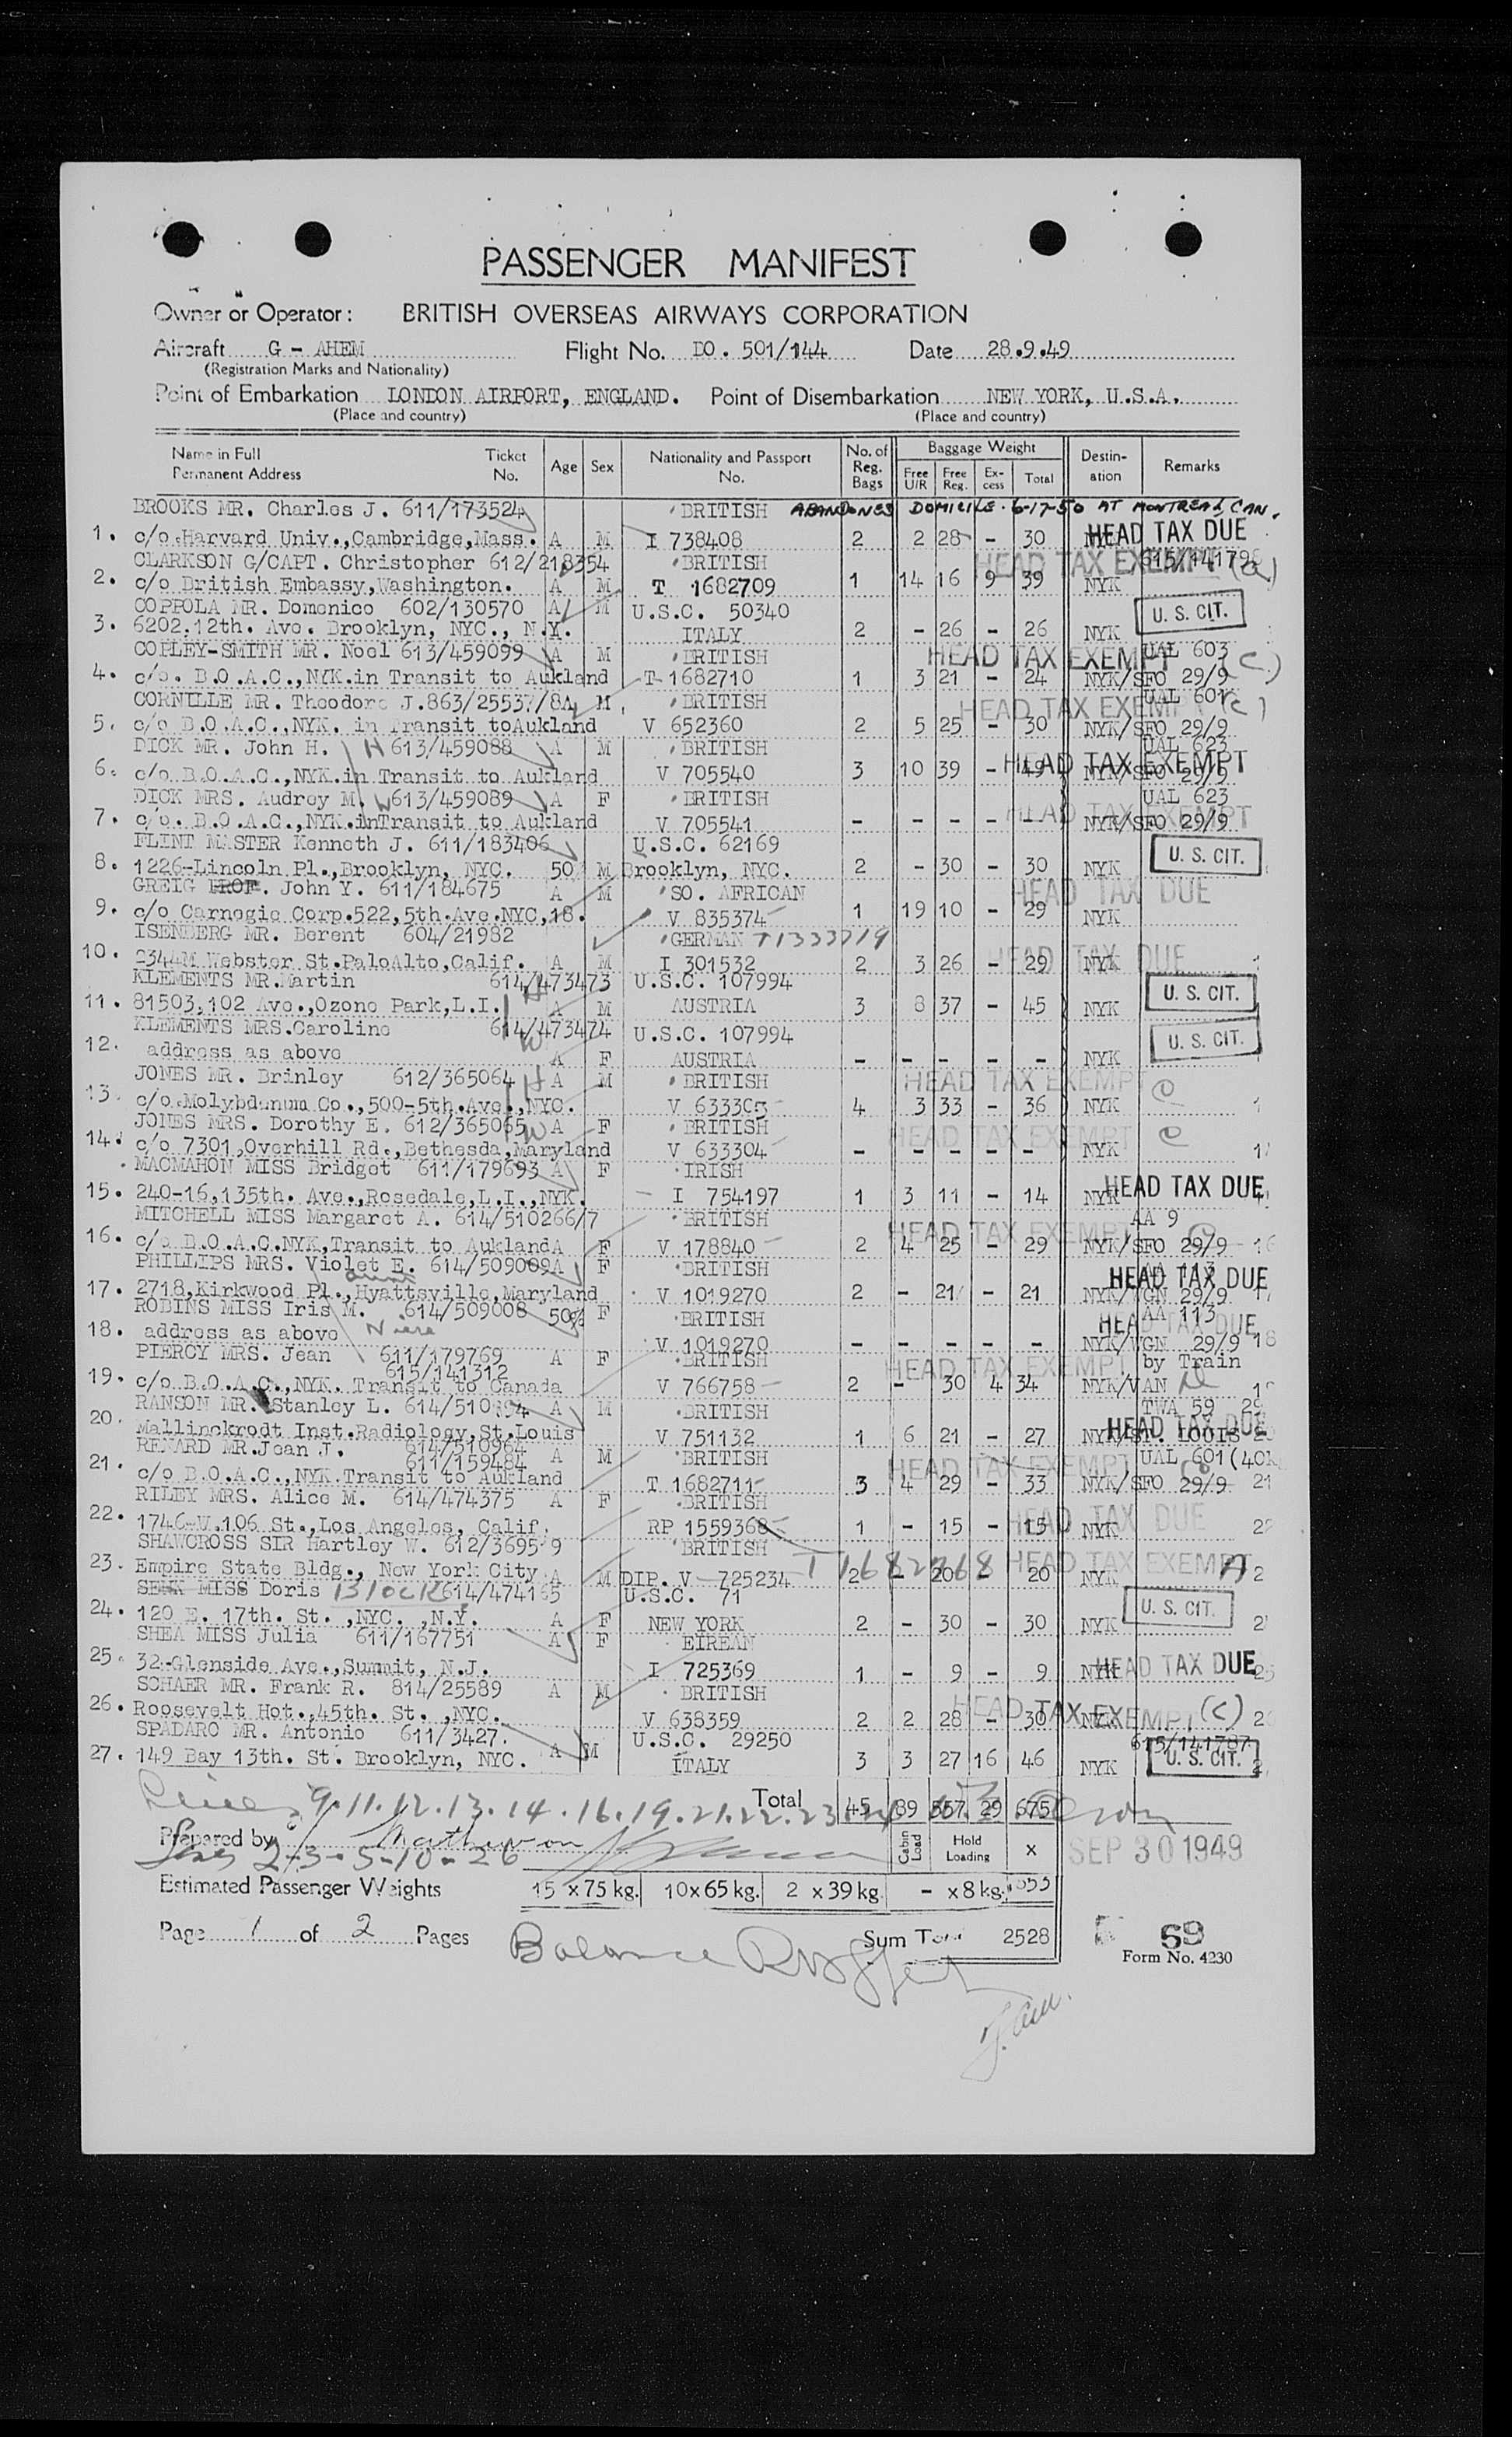 PASSENGER MANIFEST
Owner or Operator: BRITISH OVERSEAS AIRWAYS CORPORATION
Aircraft G - AHEM Flight No. DO. 501/144 Date 28.9.49
(Registration Marks and Nationality)
Point of Embarkation LONDON AIRPORT, ENGLAND. Point of Disembarkation NEW YORK, U.S.A.
(Place and country) (Place and country)
Name in Full Permanent Address Ticket No. Age Sex Nationality and Passport No. No. of Reg. Bags Baggage Weight Free U/R Free Reg. Ex-cess Total Destin-ation Remarks
BROOKS MR. Charles J. 611/173524 BRITISH ABANDONES DOMICILE 6-17-50 AT MONTREAL, CAN.
1. c/o.Harvard Univ.,Cambridge,Mass. A M I 738408 2 2 28 - 30 HEAD TAX DUE
CLARKSON G/CAPT. Christopher 612/218354 BRITISH HEAD TAX EXEMPT (a) 615/141798
2. c/o British Embassy,Washington. A M T 1682709 1 14 16 9 39 NYK
COPPOLA MR. Domenico 602/130570 A M U.S.C. 50340 U. S. CIT.
3. 6202,12th. Ave. Brooklyn, NYC., N.Y. ITALY 2 - 26 - 26 NYK
COPLEY-SMITH MR. Noel 613/459099 A M BRITISH HEAD TAX EXEMPT UAL 603 (c)
4. c/o. B.O.A.C.,NYK.in Transit to Aukland T 1682710 1 3 21 - 24 NYK/SFO 29/9
CORNILLE MR. Theodore J.863/25537/8A M BRITISH HEAD TAX EXEMPT UAL 601 (c)
5. c/o B.O.A.C.,NYK. in Transit toAukland V 652360 2 5 25 - 30 NYK/SFO 29/9
DICK MR. John H. H 613/459088 A M BRITISH UAL 623
6. c/o B.O.A.C.,NYK.in Transit to Aukland V 705540 3 10 39 - 49 NYK/SFO 29/9 HEAD TAX EXEMPT
DICK MRS. Audrey M. W 613/459089 A F BRITISH UAL 623
7. c/o. B.O.A.C.,NYK.inTransit to Aukland V 705541 - - - - - NYK/SFO 29/9 HEAD TAX EXEMPT
FLINT MASTER Kenneth J. 611/183406 U.S.C. 62169 U. S. CIT.
8. 1226-Lincoln Pl.,Brooklyn, NYC. 50 M Brooklyn, NYC. 2 - 30 - 30 NYK
GREIG PROF. John Y. 611/184675 A M SO. AFRICAN HEAD TAX DUE
9. c/o Carnegie Corp.522,5th.Ave.NYC,18. V 835374 1 19 10 - 29 NYK
ISENBERG MR. Berent 604/21982 GERMAN T1333719
10. 2344M Webster St.PaloAlto,Calif. A M I 301532 2 3 26 - 29 NYK HEAD TAX DUE
KLEMENTS MR.Martin 614/473473 U.S.C. 107994 U. S. CIT.
11. 81503,102 Ave.,Ozone Park,L.I. H A M AUSTRIA 3 8 37 - 45 NYK
KLEMENTS MRS.Caroline 614/473474 U.S.C. 107994 U. S. CIT.
12. address as above W A F AUSTRIA - - - - - NYK
JONES MR. Brinley 612/365064 H A M BRITISH HEAD TAX EXEMPT
13. c/o.Molybdenum Co.,500-5th.Ave.,NYC. V 633303 4 3 33 - 36 NYK
JONES MRS. Dorothy E. 612/365065 W A F BRITISH HEAD TAX EXEMPT
14. c/o 7301,Overhill Rd.,Bethesda,Maryland V 633304 - - - - - NYK
MACMAHON MISS Bridget 611/179693 A F IRISH
15. 240-16,135th. Ave.,Rosedale,L.I.,NYK. I 754197 1 3 11 - 14 NYK HEAD TAX DUE
MITCHELL MISS Margaret A. 614/510266/7 BRITISH AA 9 HEAD TAX EXEMPT
16. c/o B.O.A.C.NYK,Transit to AuklandA F V 178840 2 4 25 - 29 NYK/SFO 29/9 16
PHILLIPS MRS. Violet E. 614/509009A F BRITISH AA 113
17. 2718,Kirkwood Pl.,Hyattsville,Maryland V 1019270 2 - 21 - 21 NYK/WGN 29/9 HEAD TAX DUE
ROBINS MISS Iris M. 614/509008 50% F BRITISH AA 113
18. address as above Niece V 1019270 - - - - - NYK/WGN 29/9 18 HEAD TAX DUE
PIERCY MRS. Jean 611/179769 A F BRITISH HEAD TAX EXEMPT by Train
615/141312
19. c/o B.O.A.C.,NYK. Transit to Canada V 766758 2 - 30 4 34 NYK/VAN
RANSON MR. Stanley L. 614/510 94 A M BRITISH TWA 59
20. Mallinckrodt Inst.Radiology,St.Louis V 751132 1 6 21 - 27 NYK/ST. LOUIS HEAD TAX DUE
RENARD MR.Jean J. 614/510964 A M BRITISH UAL 601
611/159484
21. c/o B.O.A.C.,NYK.Transit to Aukland T 1682711 3 4 29 - 33 NYK/SFO 29/9 21 HEAD TAX EXEMPT
RILEY MRS. Alice M. 614/474375 A F BRITISH
22. 1746-W.106 St.,Los Angeles, Calif. RP 1559368 1 - 15 - 15 NYK HEAD TAX DUE
SHAWCROSS SIR Hartley W. 612/3695 9 BRITISH
23. Empire State Bldg., New York City A M DIP. V 725234 T1682768 2 - 20 - 20 NYK HEAD TAX EXEMPT A
MISS Doris 614/474165 U.S.C. 71 U. S. CIT.
24. 120 E. 17th. St. ,NYC. ,N.Y. A F NEW YORK 2 - 30 - 30 NYK
SHEA MISS Julia 611/167751 A F EIREAN
25. 32-Glenside Ave.,Summit, N.J. I 725369 1 - 9 - 9 NYK HEAD TAX DUE 25
SCHAER MR. Frank R. 814/25589 A M BRITISH
26. Roosevelt Hot.,45th. St. ,NYC. V 638359 2 2 28 - 30 NYK HEAD TAX EXEMPT (c)
SPADARO MR. Antonio 611/3427. A M U.S.C. 29250 615/141787
27. 149 Bay 13th. St. Brooklyn, NYC. ITALY 3 3 27 16 46 NYK U. S. CIT.
Lines 9.11.12.13.14.16.19.21.22.23 Total 45 89 557 29 675
Prepared by Cabin Load Hold Loading X SEP 30 1949
Lines 2-3-5-10-26
Estimated Passenger Weights 15 x 75 kg. 10 x 65 kg. 2 x 39 kg. - x 8 kg. 1853
Page 1 of 2 Pages Sum Total 2528 69
Form No. 4230
Balance